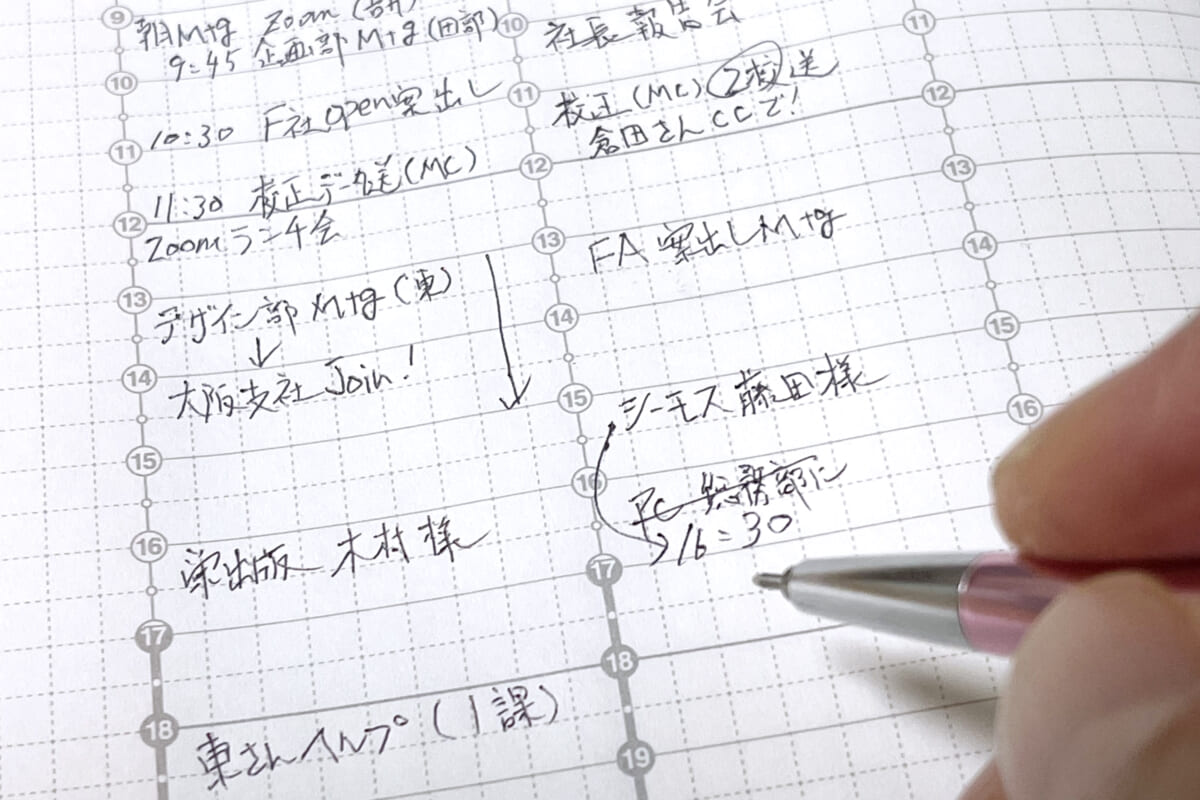 9
朝Mtg Zoom
9:45 企画部Mtg (田部)
10
10:30 F社open案出し
11
11:30 校正データ送(MC)
12
Zoomランチ会
13
デザイン部Mtg(東)
↓
14
大阪支社Join!
15
16
案出版 木村様
17
18
東さんヘルプ(1課)
10
社長報告会
11
校正(MC)2校送
倉田さんCCで!
12
13
FA案出しMtg
14
15
シーモス藤田様
16
PC 総務部に
16:30
17
18
19
11
12
13
14
15
16